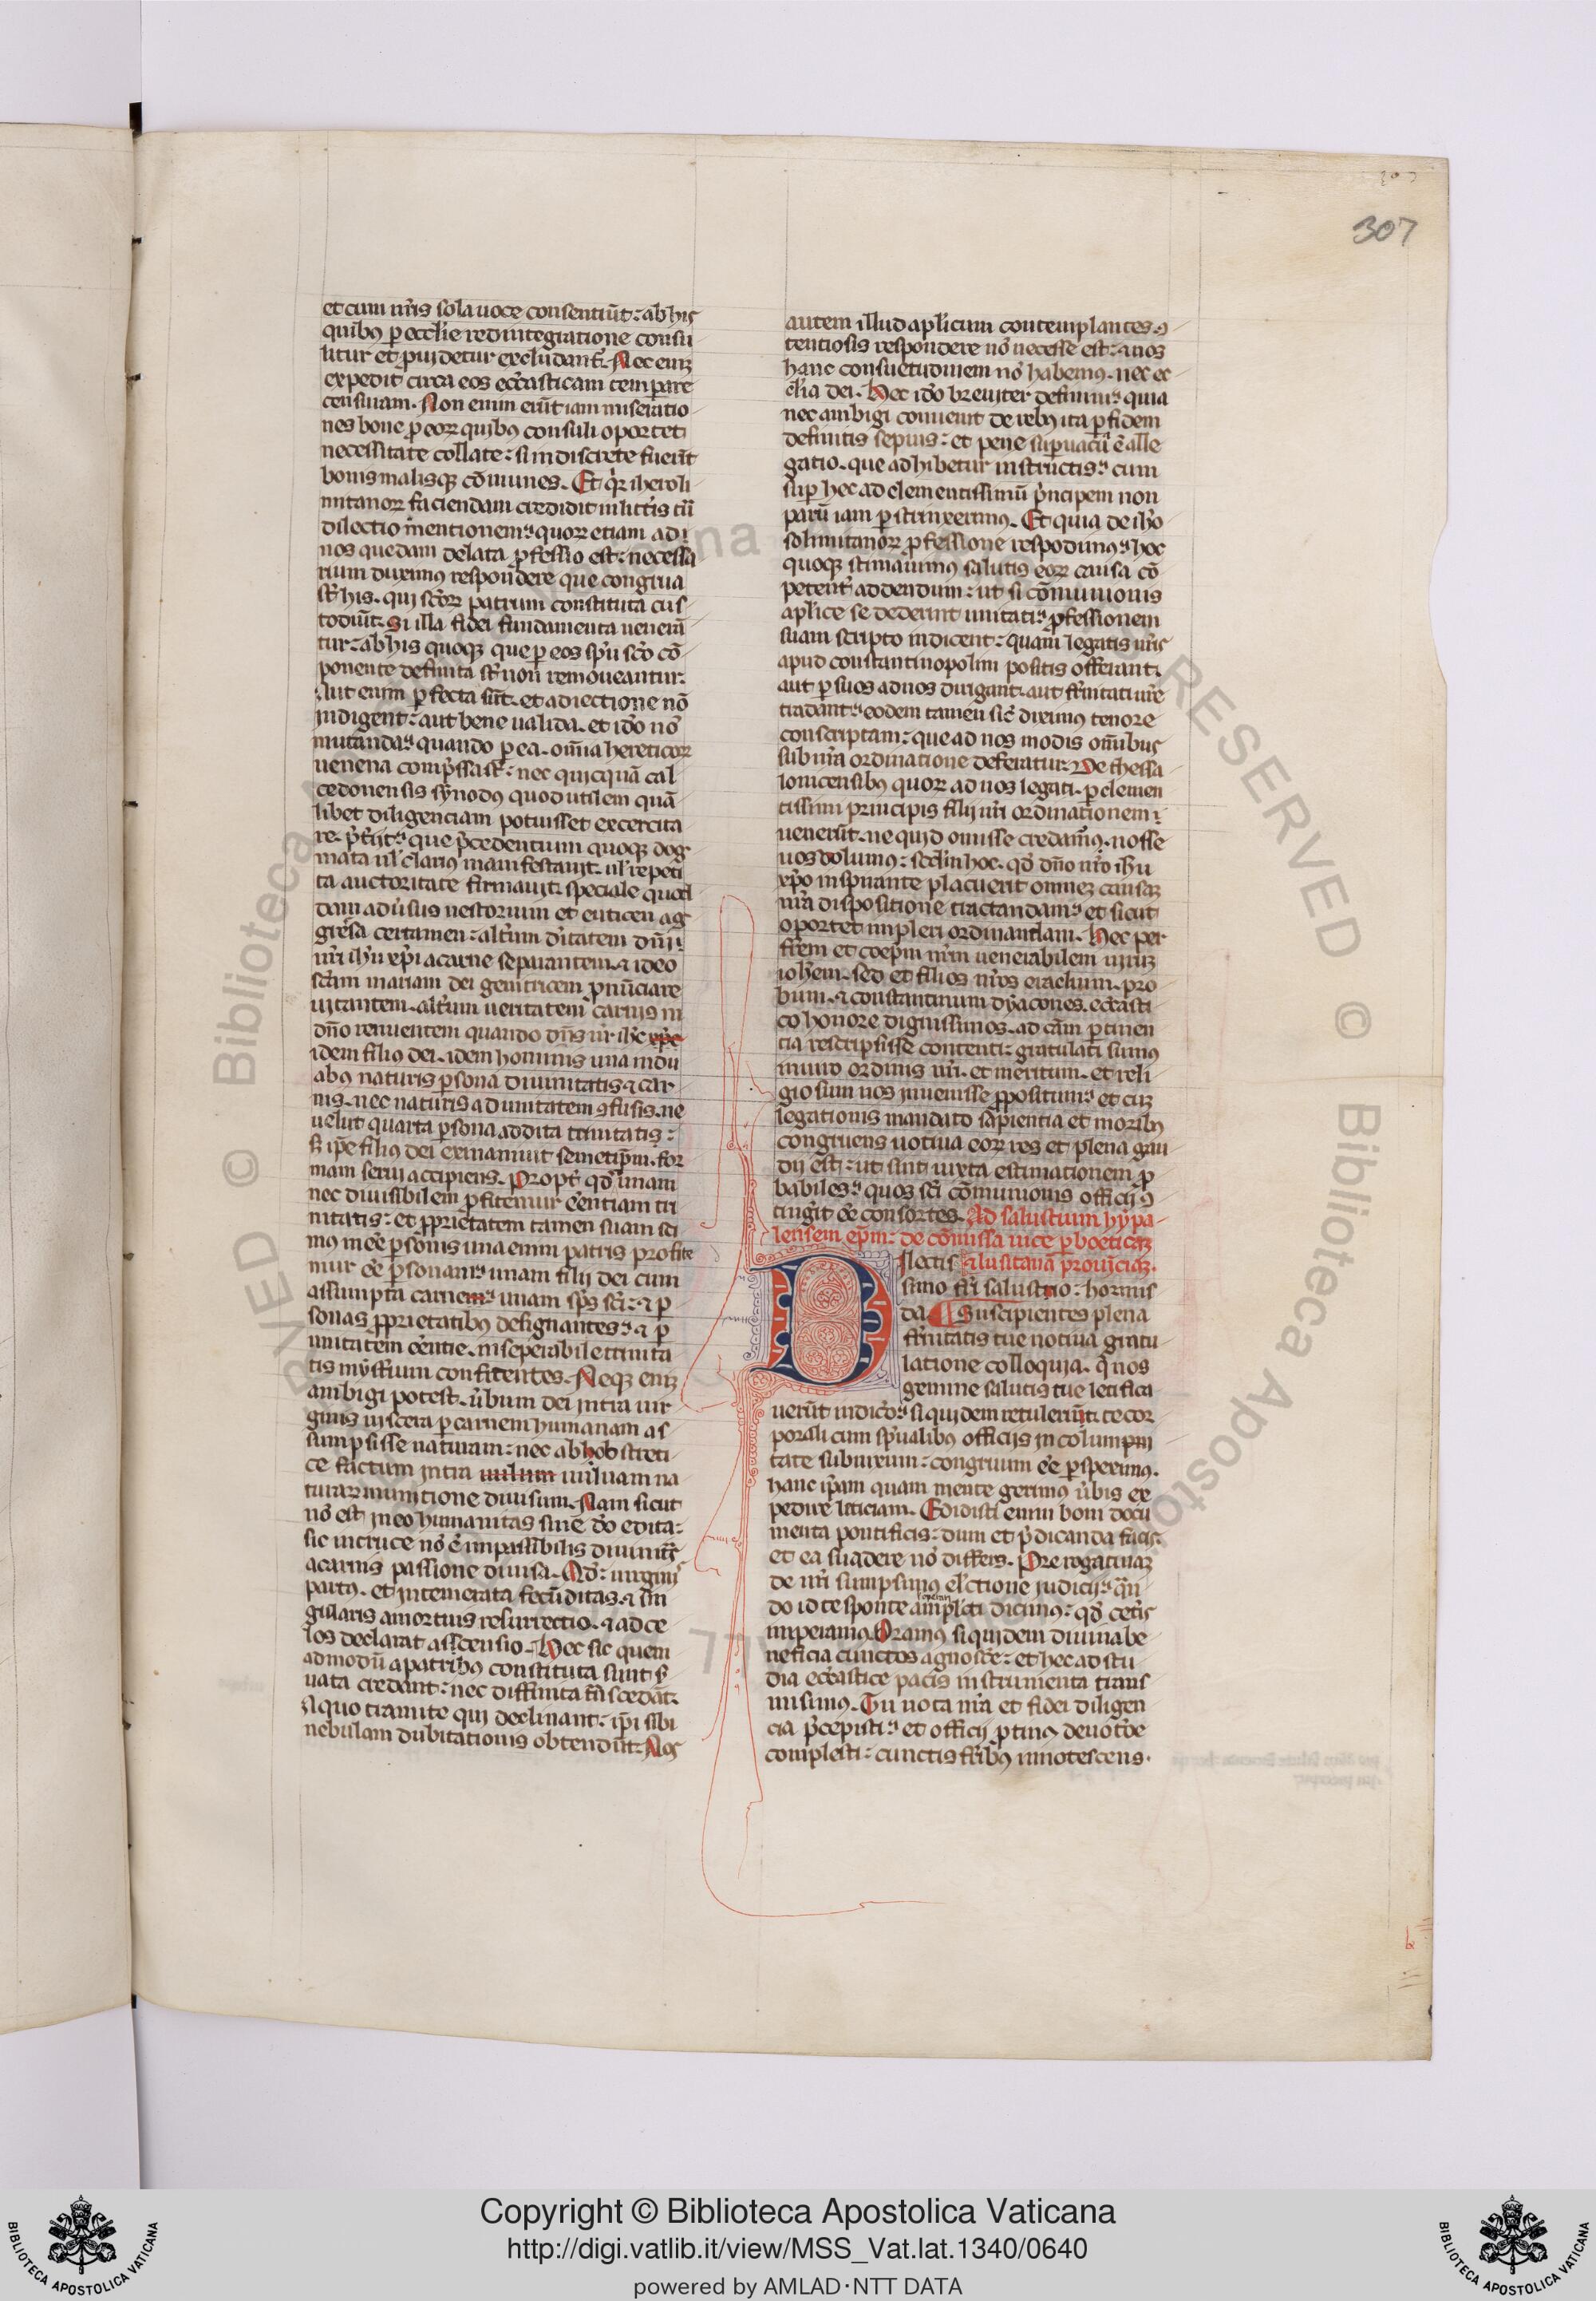 307
et cum nr̄is sola uoce consentiūt: ab his
quibꝰ ꝑ eccl̄ie redintegratione consu
litur et ꝓuidetur excludant᷑. Nec enīꝫ
expedit circa eos ecc̄asticam temperare
censuram. Non enim erūt iam miseratio
nes bone ꝓ eoꝝ quibꝰ consuli oportet
necessitate collate: si indiscrete fuerīt
bonis malisqꝫ cōmunes. Et qꝛ iheroli
mitanoꝝ faciendam credidit in litt̄is tū
dilectio mentionem: quoꝝ etiam ad
nos quedam delata ꝓfessio est: necessa
rium duximꝰ respondere que congrua
st̄ his. qui sc̄oꝝ patrum constituta cus
todiūt. Si illa fidei fundamenta uenerā
tur: ab his quoqꝫ que ꝑ eos sp̄u sc̄o cō
ponente definita st̄ non remoueantur.
Aut enim ꝑfecta sūt. et adiectione nō
indigent: aut bene ualida. et idō nō
mutanda: quando ꝑ ea. om̄ia hereticoꝝ
uenena comp̄ssa st̄: nec quicquā cal
cedonensis synodꝰ quod utilem quā
libet diligenciam potuisset excercita
re. p̄t̄ijt: que p̄cedentium quoqꝫ dog
mata ul̄ clariꝰ manifestauit. ul̄ repeti
ta auctoritate firmauit. speciale quod
dam adūsus nestorium et euticen ag
gressa certamen: alt̄um dītatem dn̄i
nr̄i ih̄u xp̄i a carne separantem. ⁊ ideo
sc̄am mariam dei genitricem ꝓnūciare
uitantem. alt̄um ueritatem carnis in
dn̄o renuentem quando dn̄s nr̄ ih̄c xp̄c
idem filiꝰ dei. idem hominis una in du
abꝰ naturis ꝑsona diuinitatis ⁊ car
nis. nec naturis ad unitatem ꝯfusis. ne
uelut quarta ꝑsona addita trinitatis:
s̄ ip̄e filiꝰ dei exinaniuit semetip̄m. for
mam serui accipiens. Propt̄ qd̄ unam
nec diuisibilem ꝓfitemur cēntiam tri
nitatis: et ꝓprietatem tamen suam sci
mꝰ inēe ꝑsonis una enim patris profite
mur ēe ꝑsonam: unam filij dei cum
assumpta carnem: unam sp̄s sc̄i: ⁊ ꝑ
sonas ꝓprietatibꝰ designantes: ⁊ ꝑ
unitatem cēntie. inseperabile trinita
tis myst̄ium confitentes. Neqꝫ enīꝫ
ambigi potest. ūbum dei intra uir
ginis uiscera ꝑ carnem humanam as
sumpsisse naturam: nec ab hob stetri
ce factum intra uulum uuluam na
turaꝝ munitione diuisum. Nam sicut
nō est in eo humanitas sine dō edita:
sic in cruce nō ē impassibilis diuinitas
a carnis passione diuisa. Qd̄: uirginis
partꝰ. et intemerata fecūditas. ⁊ sin
gularis a mortuis resurrectio. ⁊ ad ce
los declarat asscensio. Hec sic quem
admodū a patribꝰ constituta sunt s̄
uata credant: nec diffinita t̄nscedāt.
A quo tramite qui declinant: ip̄i sibi
nebulam dubitationis obtendūt: Nos
autem illud aplicum contemplantes. ꝯ
tentiosis respondere nō necesse est: ⁊ nos
hanc consuetudinem nō habemꝰ. nec ec
cl̄ia dei. Hec idō breuiter definimꝰ quia
nec ambigi conuenit de rebꝰ ita ꝑ fidem
definitis sepius: et pene suꝑuacū ē alle
gatio. que adhibetur instructis: cum
suꝑ hec ad clementissimū p̄ncipem non
parū iam ꝑstrinxerimꝰ. Et quia de ih̄o
solimitanoꝝ ꝓfessione respōdimꝰ: hoc
quoqꝫ stimauimꝰ salutis eoꝝ causa cō
petent̄ addendum: ut si cōmunionis
aplice se dederint unitati: ꝓfessionem
suam scripto indicent: quam legatis nr̄is
apud constantinopolim positis offerant.
aut ꝑ suos ad nos dirigant. aut fr̄nitati ur̄e
tradant: eodem tamen sic̄ diximꝰ tenore
conscriptam: que ad nos modis om̄ibus
sub nr̄a ordinatione deferatur. De thessa
lonicensibꝰ quoꝝ ad nos legati. ꝑ clemen
tissimi principis filij nr̄i ordinationem
uenerūt. ne quid omisse credamꝰ. nosse
uos uolumꝰ: sed in hoc. qd̄ dn̄o nr̄o ih̄u
xp̄o inspirante placuerit omneꝫ causaꝫ
nr̄a dispositione tractandam: et sicut
oportet impleri ordinandam. Hec per
fr̄em et coep̄m nr̄m uenerabilem uiruꝫ
ioh̄em. sed et filios nr̄os eraclium. pro
bum. ⁊ constantinum dyacones. ecc̄asti
co honore dignissimos. ad cām ꝑtinen
cia rescripsisse contenti: gratulati sumꝰ
in uiro ordinis nr̄i. et meritum. et reli
giosum nos inuenisse ꝓpositum: et cuꝫ
legationis mandato sapientia et moribꝰ
congruens uotiua eoꝝ res et plena gau
dij est: ut sint iuxta estimationem ꝓ
babiles: quos sc̄i cōmunionis officij ꝯ
tingit ēe consortes. Ad salustium hyspa
lensem ep̄m: de cōmissa uice ꝑ boeticaꝫ
⁊ lusitanā prouinciaꝫ.
Dilectis
simo fr̄i salustrio: hormis
da. ¶ Suscipientes plena
fr̄nitatis tue uotiua gratu
latione colloquia. q̄ nos
gemine salutis tue letifica
uerūt indicō: siquidem retulerūt. te cor
porali cum sp̄ualibꝰ officijs incolumini
tate subnixum: congruum ēe ꝑspeximꝰ.
hanc ip̄am quam mente gerimꝰ ūbis ex
pedire leticiam. Edidisti enim boni docu
menta pontificis: dum et p̄dicanda facis.
et ea suadere nō differs. Prerogatiuaꝫ
de nr̄i sumpsimꝰ el̄ctione iudicij: qn̄
do id te sponte amplecti dicimꝰ: qd̄ cet̄is
imperamꝰ. Oramꝰ siquidem diuina be
neficia cunctos agnosc̄e: et hec ad stu
dia ecc̄astice pacis instrumenta trans
misimꝰ. Tu uota nr̄a et fidei diligen
cia p̄cepisti: et officij ꝓtinꝰ deuotōe
complesti: cunctis fr̄ibꝰ innotescens.
Copyright © Biblioteca Apostolica Vaticana
http://digi.vatlib.it/view/MSS_Vat.lat.1340/0640
powered by AMLAD·NTT DATA
BIBLIOTECA APOSTOLICA VATICANA
BIBLIOTECA APOSTOLICA VATICANA